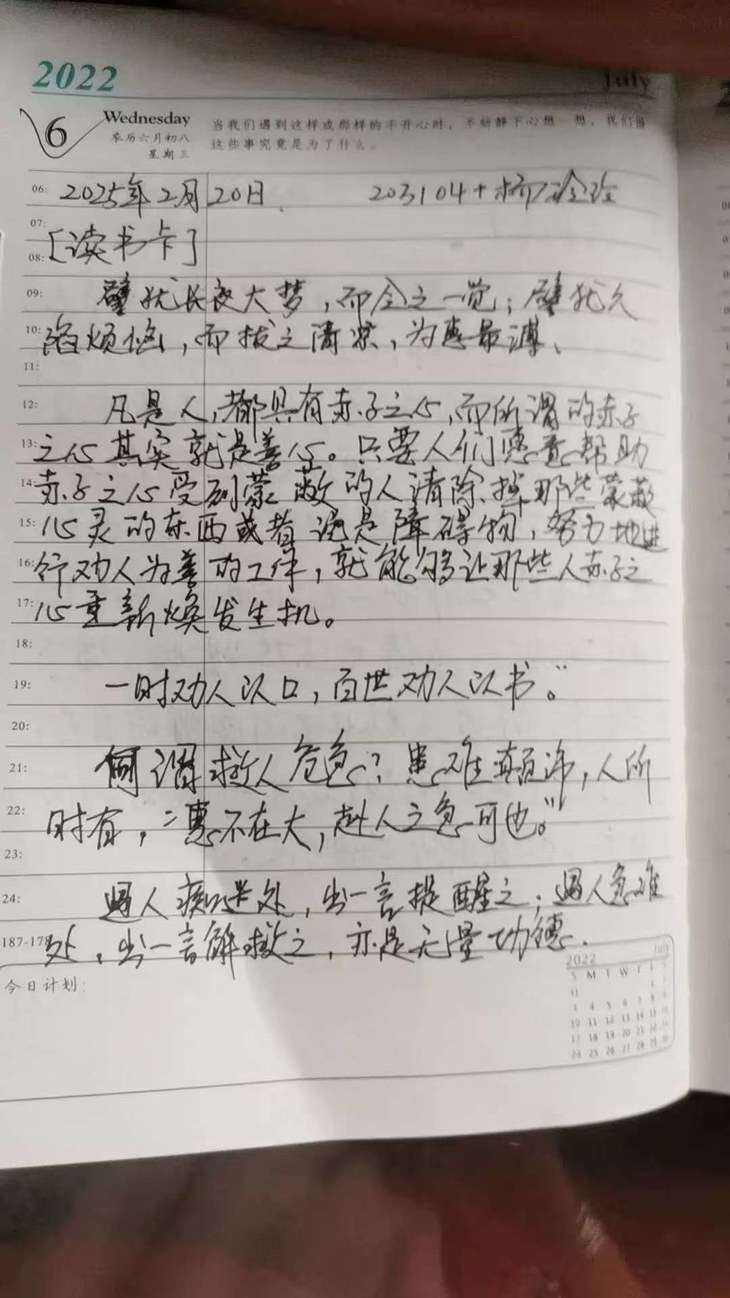 2022
July
6
Wednesday
农历六月初八
星期三
当我们遇到这样或那样的不开心时，不妨静下心想一想，我们当
这些事究竟是为了什么。
06: 2025年2月20日. 203104+杨
07:
[读书卡]
08:
09: 譬犹长夜大梦，而令之一觉；譬犹久
10: 陷烦恼，而拔之清凉，为惠最溥、
11:
12: 凡是人，都具有赤子之心，而所谓的赤子
13: 之心其实就是善心。只要人们愿意帮助
14: 赤子之心受到蒙蔽的人清除掉那些蒙蔽
15: 心灵的东西或者说是障碍物，努力地进
16: 行劝人为善的工作，就能够让那些人赤子之
17: 心重新焕发生机。
18:
19: 一时劝人以口，百世劝人以书。”
20:
21: 何谓救人危急？患难颠沛，人所
22: 时有，“惠不在大，赴人之急可也。”
23:
24: 遇人痴迷处，出一言提醒之；遇人急难
187-178 处，出一言解救之，亦是无量功德.
今日计划:
2022 July
S M T W T F S
31 1 2
3 4 5 6 7 8 9
10 11 12 13 14 15 16
17 18 19 20 21 22 23
24 25 26 27 28 29 30